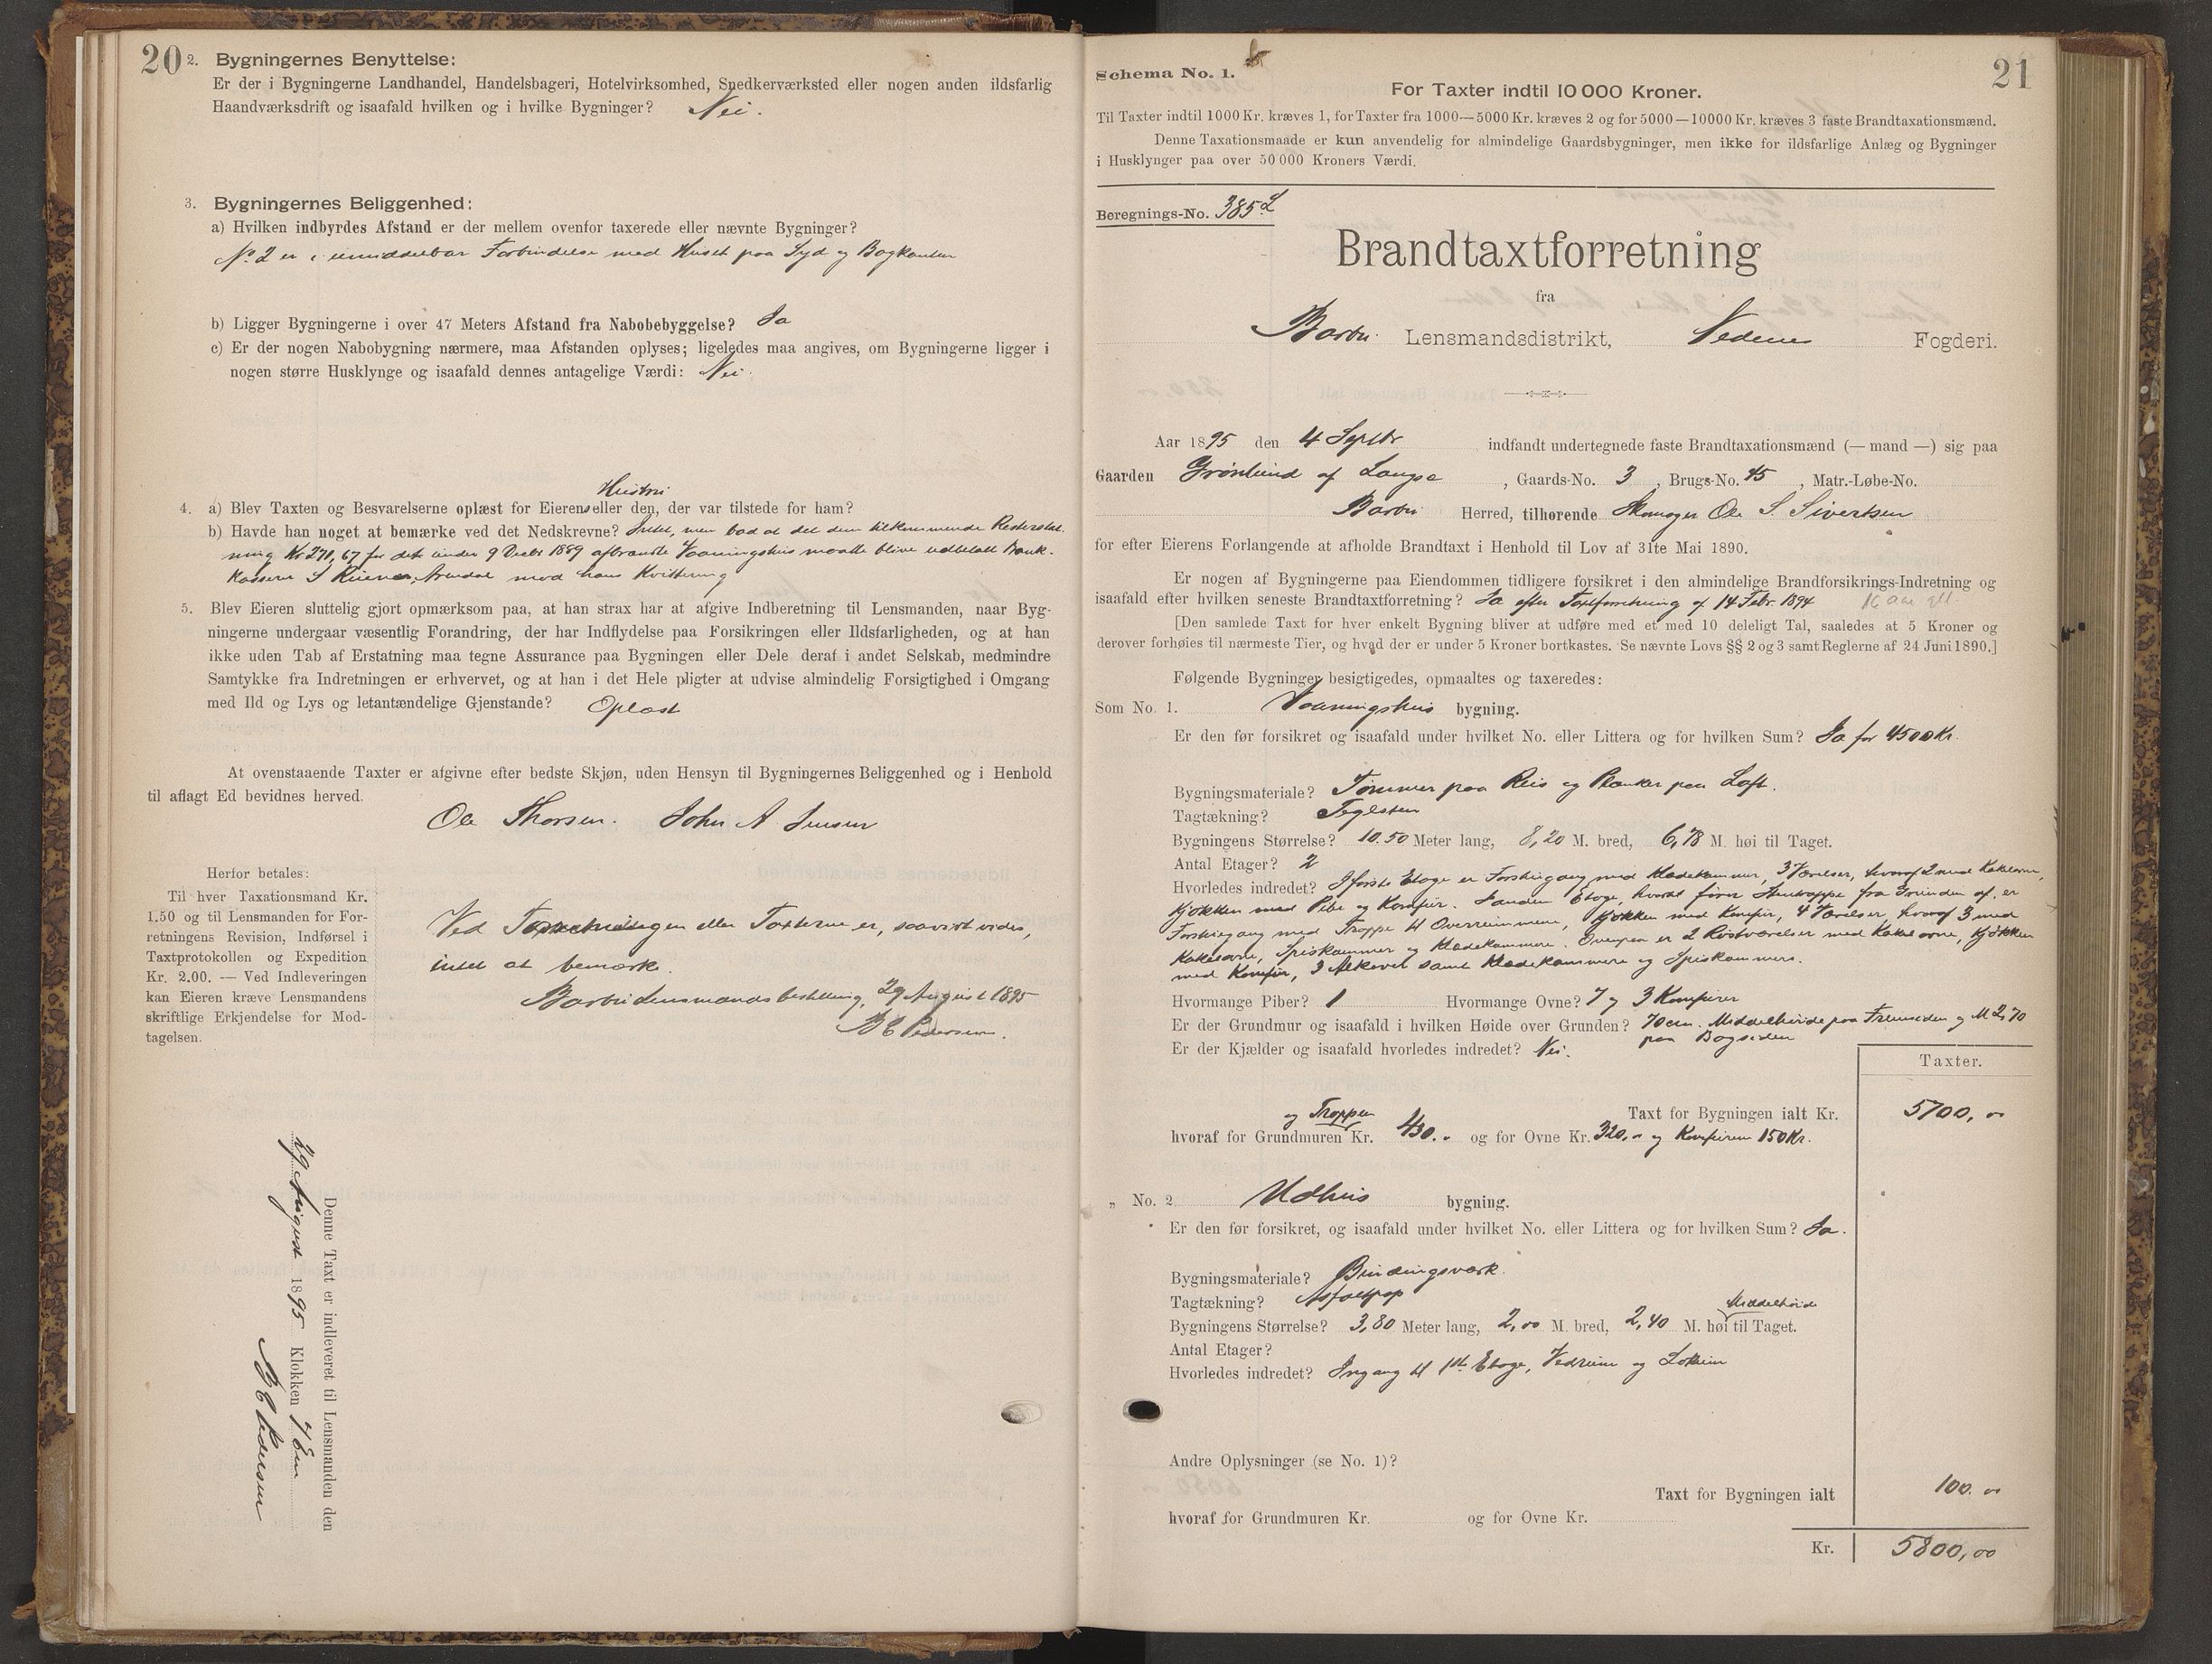 20
2. Bygningernes Benyttelse:
Er der i Bygningerne Landhandel, Handelsbageri, Hotelvirksomhed, Snedkerværksted eller nogen anden ildsfarlig
Haandværksdrift og isaafald hvilken og i hvilke Bygninger? Nei.
3. Bygningernes Beliggenhed:
a) Hvilken indbyrdes Afstand er der mellem ovenfor taxerede eller nævnte Bygninger?
No 2 er i umiddelbar Forbindelse med Huset paa Syd og Bagkanten
b) Ligger Bygningerne i over 47 Meters Afstand fra Nabobebyggelse? Ja
c) Er der nogen Nabobygning nærmere, maa Afstanden oplyses; ligeledes maa angives, om Bygningerne ligger i
nogen større Husklynge og isaafald dennes antagelige Værdi: Nei.
Hustru
4. a) Blev Taxten og Besvarelserne oplæst for Eierens eller den, der var tilstede for ham?
b) Havde han noget at bemærke ved det Nedskrevne? Intet, men bad at det dem tilkommende Resterstat
ning Kr 271,67 for det under 9 Decbr 1889 afbrændte Vaaningshus maatte blive udbetalt Bank-
kasserer S Arendal mod hans Kvittering
5. Blev Eieren sluttelig gjort opmærksom paa, at han strax har at afgive Indberetning til Lensmanden, naar Byg-
ningerne undergaar væsentlig Forandring, der har Indflydelse paa Forsikringen eller Ildsfarligheden, og at han
ikke uden Tab af Erstatning maa tegne Assurance paa Bygningen eller Dele deraf i andet Selskab, medmindre
Samtykke fra Indretningen er erhvervet, og at han i det Hele pligter at udvise almindelig Forsigtighed i Omgang
med Ild og Lys og letantændelige Gjenstande? Oplæst
At ovenstaaende Taxter er afgivne efter bedste Skjøn, uden Hensyn til Bygningernes Beliggenhed og i Henhold
til aflagt Ed bevidnes herved.
Ole Thorsen. John A Jensen
Herfor betales:
Til hver Taxationsmand Kr.
1.50 og til Lensmanden for For-
retningens Revision, Indførsel i
Taxtprotokollen og Expedition
Kr. 2.00. — Ved Indleveringen
kan Eieren kræve Lensmandens
skriftlige Erkjendelse for Mod-
tagelsen.
Ved eller Taxterne er, saavidt vides,
intet at bemærke.
Barbu Lensmandsbestilling, 29 August 1895
B C Pedersen.
Denne Taxt er indleveret til Lensmanden den
29 August 1895 Klokken 7 Em
B C Pedersen
21
Schema No. 1.
For Taxter indtil 10 000 Kroner.
Til Taxter indtil 1000 Kr. kræves 1, for Taxter fra 1000—5000 Kr. kræves 2 og for 5000—10000 Kr. kræves 3 faste Brandtaxationsmænd.
Denne Taxationsmaade er kun anvendelig for almindelige Gaardsbygninger, men ikke for ildsfarlige Anlæg og Bygninger
i Husklynger paa over 50 000 Kroners Værdi.
Beregnings-No. 385 L
Brandtaxtforretning
fra
Barbu Lensmandsdistrikt, Nedenes Fogderi.
Aar 1895 den 4 Septbr indfandt undertegnede faste Brandtaxationsmænd (— mand —) sig paa
Gaarden Grønlund af Langsæ, Gaards-No. 3, Brugs-No. 45, Matr.-Løbe-No.
Barbu Herred, tilhørende Skomager Ole S. Sivertsen
for efter Eierens Forlangende at afholde Brandtaxt i Henhold til Lov af 31te Mai 1890.
Er nogen af Bygningerne paa Eiendommen tidligere forsikret i den almindelige Brandforsikrings-Indretning og
isaafald efter hvilken seneste Brandtaxtforretning? Ja efter Taxtforretning af 14 Febr. 1894
[Den samlede Taxt for hver enkelt Bygning bliver at udføre med et med 10 deleligt Tal, saaledes at 5 Kroner og
derover forhøies til nærmeste Tier, og hvad der er under 5 Kroner bortkastes. Se nævnte Lovs §§ 2 og 3 samt Reglerne af 24 Juni 1890.]
Følgende Bygninger besigtigedes, opmaaltes og taxeredes:
Som No. 1. Vaaningshus bygning.
Er den før forsikret og isaafald under hvilket No. eller Littera og for hvilken Sum? Ja for 4500 Kr.
Bygningsmateriale? Tømmer paa Reis og Planker paa Loft.
Tagtækning? Teglsten
Bygningens Størrelse? 10.50 Meter lang, 8,20 M. bred, 6,78 M. høi til Taget.
Antal Etager? 2
Hvorledes indredet? I første Etage er Forstuegang med Klædekammer, 3 Værelser, hvoraf 2 med Kakkelovne,
Kjøkken med Pibe og Komfur. I anden Etage, hvortil fører Stentrappe fra Grunden af, er
Forstuegang med Trappe til Overrummene, Kjøkken med Komfur, 4 Værelser, hvoraf 3 med
Kakelovne, Spiskammer og Klædekammere. Ovenpaa er 2 Kvistværelser med Kakelovne, Kjøkken
med Komfur, 3 Alkover samt Klædekammere og Spiskammers.
Hvormange Piber? 1 Hvormange Ovne? 7 og 3 Komfurer
Er der Grundmur og isaafald i hvilken Høide over Grunden? 70 cm. Middelhøide paa Fremsiden og M 2,70
paa Bagsiden
Er der Kjælder og isaafald hvorledes indredet? Nei.
Taxter.
Taxt for Bygningen ialt Kr. 5700,00
og Trappen
hvoraf for Grundmuren Kr. 430.- og for Ovne Kr. 320,- og Komfurerne 150 Kr.
„ No. 2 Udhus bygning.
Er den før forsikret, og isaafald under hvilket No. eller Littera og for hvilken Sum? Ja.
Bygningsmateriale? Bindingsværk.
Tagtækning? Asfaltpap
Middelhøide
Bygningens Størrelse? 3,80 Meter lang, 2,00 M. bred, 2,40 M. høi til Taget.
Antal Etager?
Hvorledes indredet? Ingang til 1ste Etage, Vedrum og Lokum
Andre Oplysninger (se No. 1)?
Taxt for Bygningen ialt 100.00
hvoraf for Grundmuren Kr. og for Ovne Kr.
Kr. 5800,00